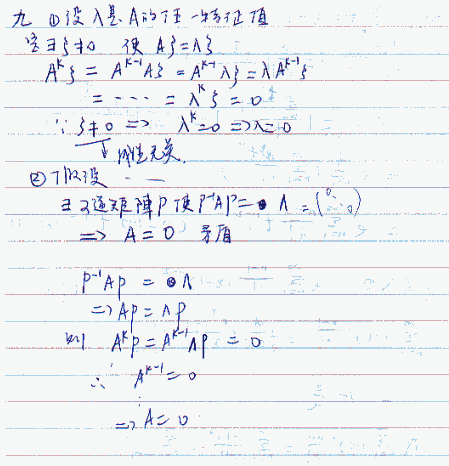 九 ①设 λ是A的任一特征值
必∃ξ≠0 使 Aξ=λξ
A^kξ = A^{k-1}Aξ = A^{k-1}λξ = λA^{k-1}ξ
= ⋯⋯ = λ^kξ = 0
∵ ξ≠0 => λ^k=0 => λ=0
↓ 线性无关.
②假设
∃可逆矩阵P使P^{-1}AP= Λ =(0⋱0)
=> A=0 矛盾
P^{-1}AP = Λ
=> AP=ΛP
则 A^kP=A^{k-1}ΛP = 0
∴ A^{k-1}=0
⋮
=> A=0